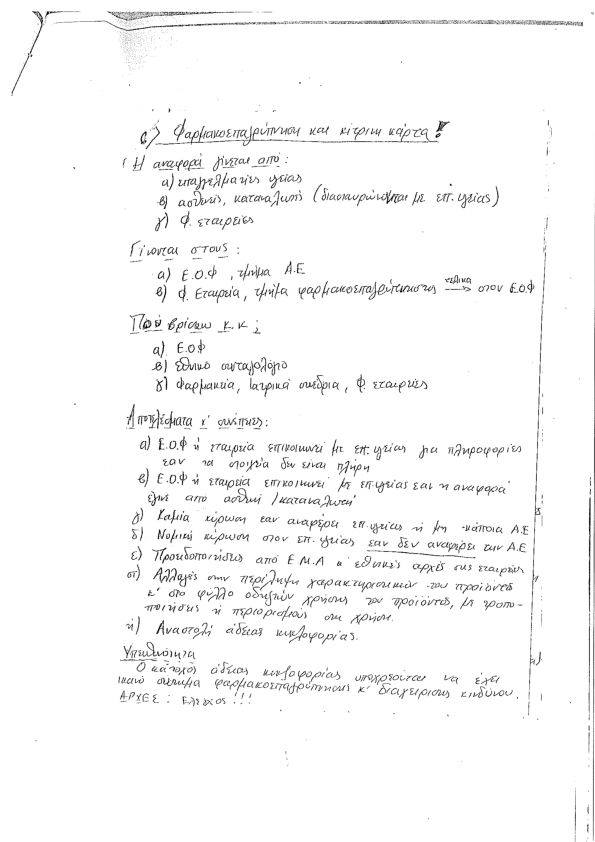 c) Φαρμακοεπαγρύπνηση και κίτρινη κάρτα!
Η αναφορά γίνεται από:
α) επαγγελματίες υγείας
β) ασθενής, καταναλωτής (διασταυρώνεται με επ. υγείας)
γ) Φ. εταιρείες
Γίνονται στους:
α) Ε.Ο.Φ, τμήμα Α.Ε
β) Φ. Εταιρεία, τμήμα φαρμακοεπαγρύπνησης τελικά → στον Ε.Ο.Φ
Πού βρίσκω κ.κ;
α) Ε.Ο.Φ
β) εθνικό συνταγολόγιο
γ) Φαρμακεία, Ιατρικά συνέδρια, Φ. εταιρείες
Αποτελέσματα κ' συνέπειες:
α) Ε.Ο.Φ ή εταιρεία επικοινωνεί με επ. υγείας για πληροφορίες
εαν τα στοιχεία δεν είναι πλήρη
β) Ε.Ο.Φ ή εταιρεία επικοινωνεί με επ. υγείας εαν η αναφορά
έγινε από ασθενή / καταναλωτή
γ) Καμία κύρωση εαν αναφέρει επ. υγείας ή μη κάποια Α.Ε
δ) Νομική κύρωση στον επ. υγείας εαν δεν αναφέρει την Α.Ε
ε) Προειδοποιήσεις από Ε.Μ.Α κ' εθνικές αρχές στις εταιρείες
στ) Αλλαγές στην περίληψη χαρακτηριστικών του προϊόντος
κ' στο φύλλο οδηγιών χρήσης του προϊόντος, με τροπο-
ποιήσεις ή περιορισμούς στη χρήση.
η) Αναστολή άδειας κυκλοφορίας.
Υπευθυνότητα
Ο κάτοχος άδειας κυκλοφορίας υποχρεούται να έχει
ικανό σύστημα φαρμακοεπαγρύπνησης κ' διαχείρισης κινδύνου.
ΑΡΧΕΣ: Έλεγχος!!!